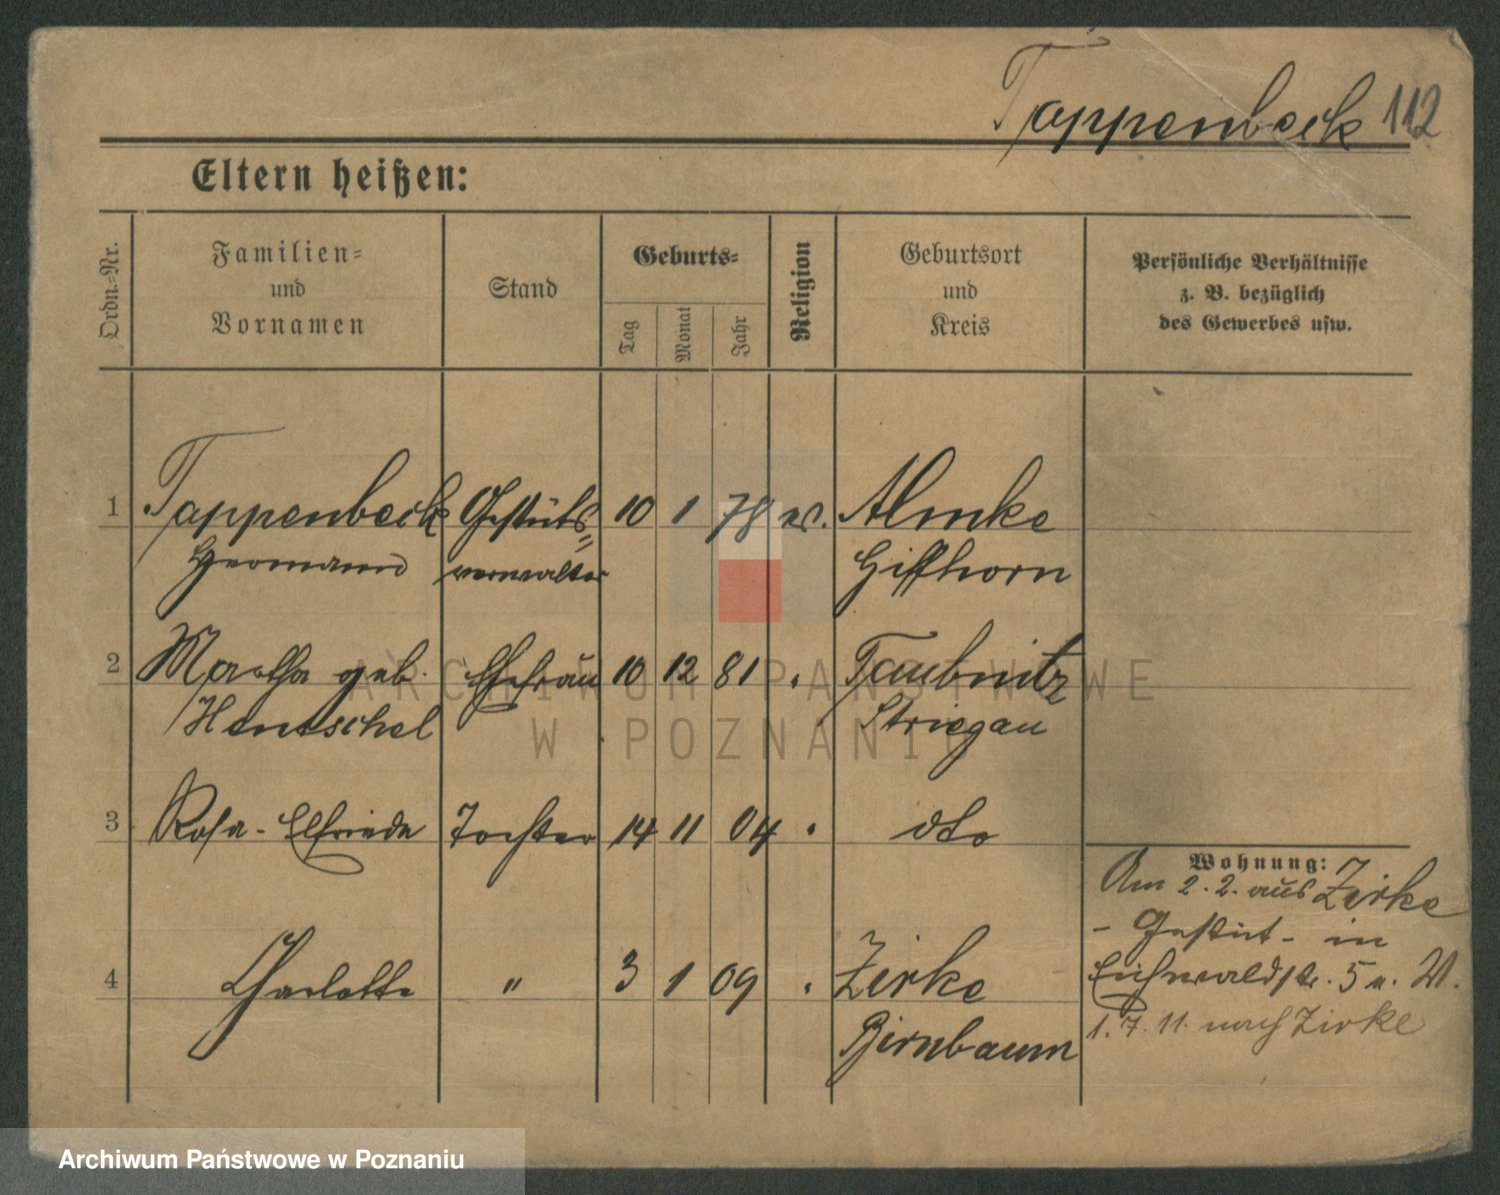 Tappenbeck 112
Eltern heißen:
Ordn.-Nr.
Familien-
und
Vornamen
Stand
Geburts-
Tag
Monat
Jahr
Religion
Geburtsort
und
Kreis
Persönliche Verhältnisse
z. B. bezüglich
des Gewerbes usw.
1 Tappenbeck Gestüts- 10 1 78 ev. Almke
Hermann verwalter Gifhorn
2 Martha geb. Ehefrau 10 12 81 " Taubnitz
Hentschel Striegau
3 Rosa-Elfriede Tochter 14 11 04 " dto
4 Charlotte " 3 1 09 " Zirke
Birnbaum
Wohnung:
Am 2.2. aus Zirke
- Gestüt - in
Eichwaldstr. 5 v. W.
1.7.11. nach Zirke
ARCHIWUM PAŃSTWOWE
W POZNANIU
Archiwum Państwowe w Poznaniu